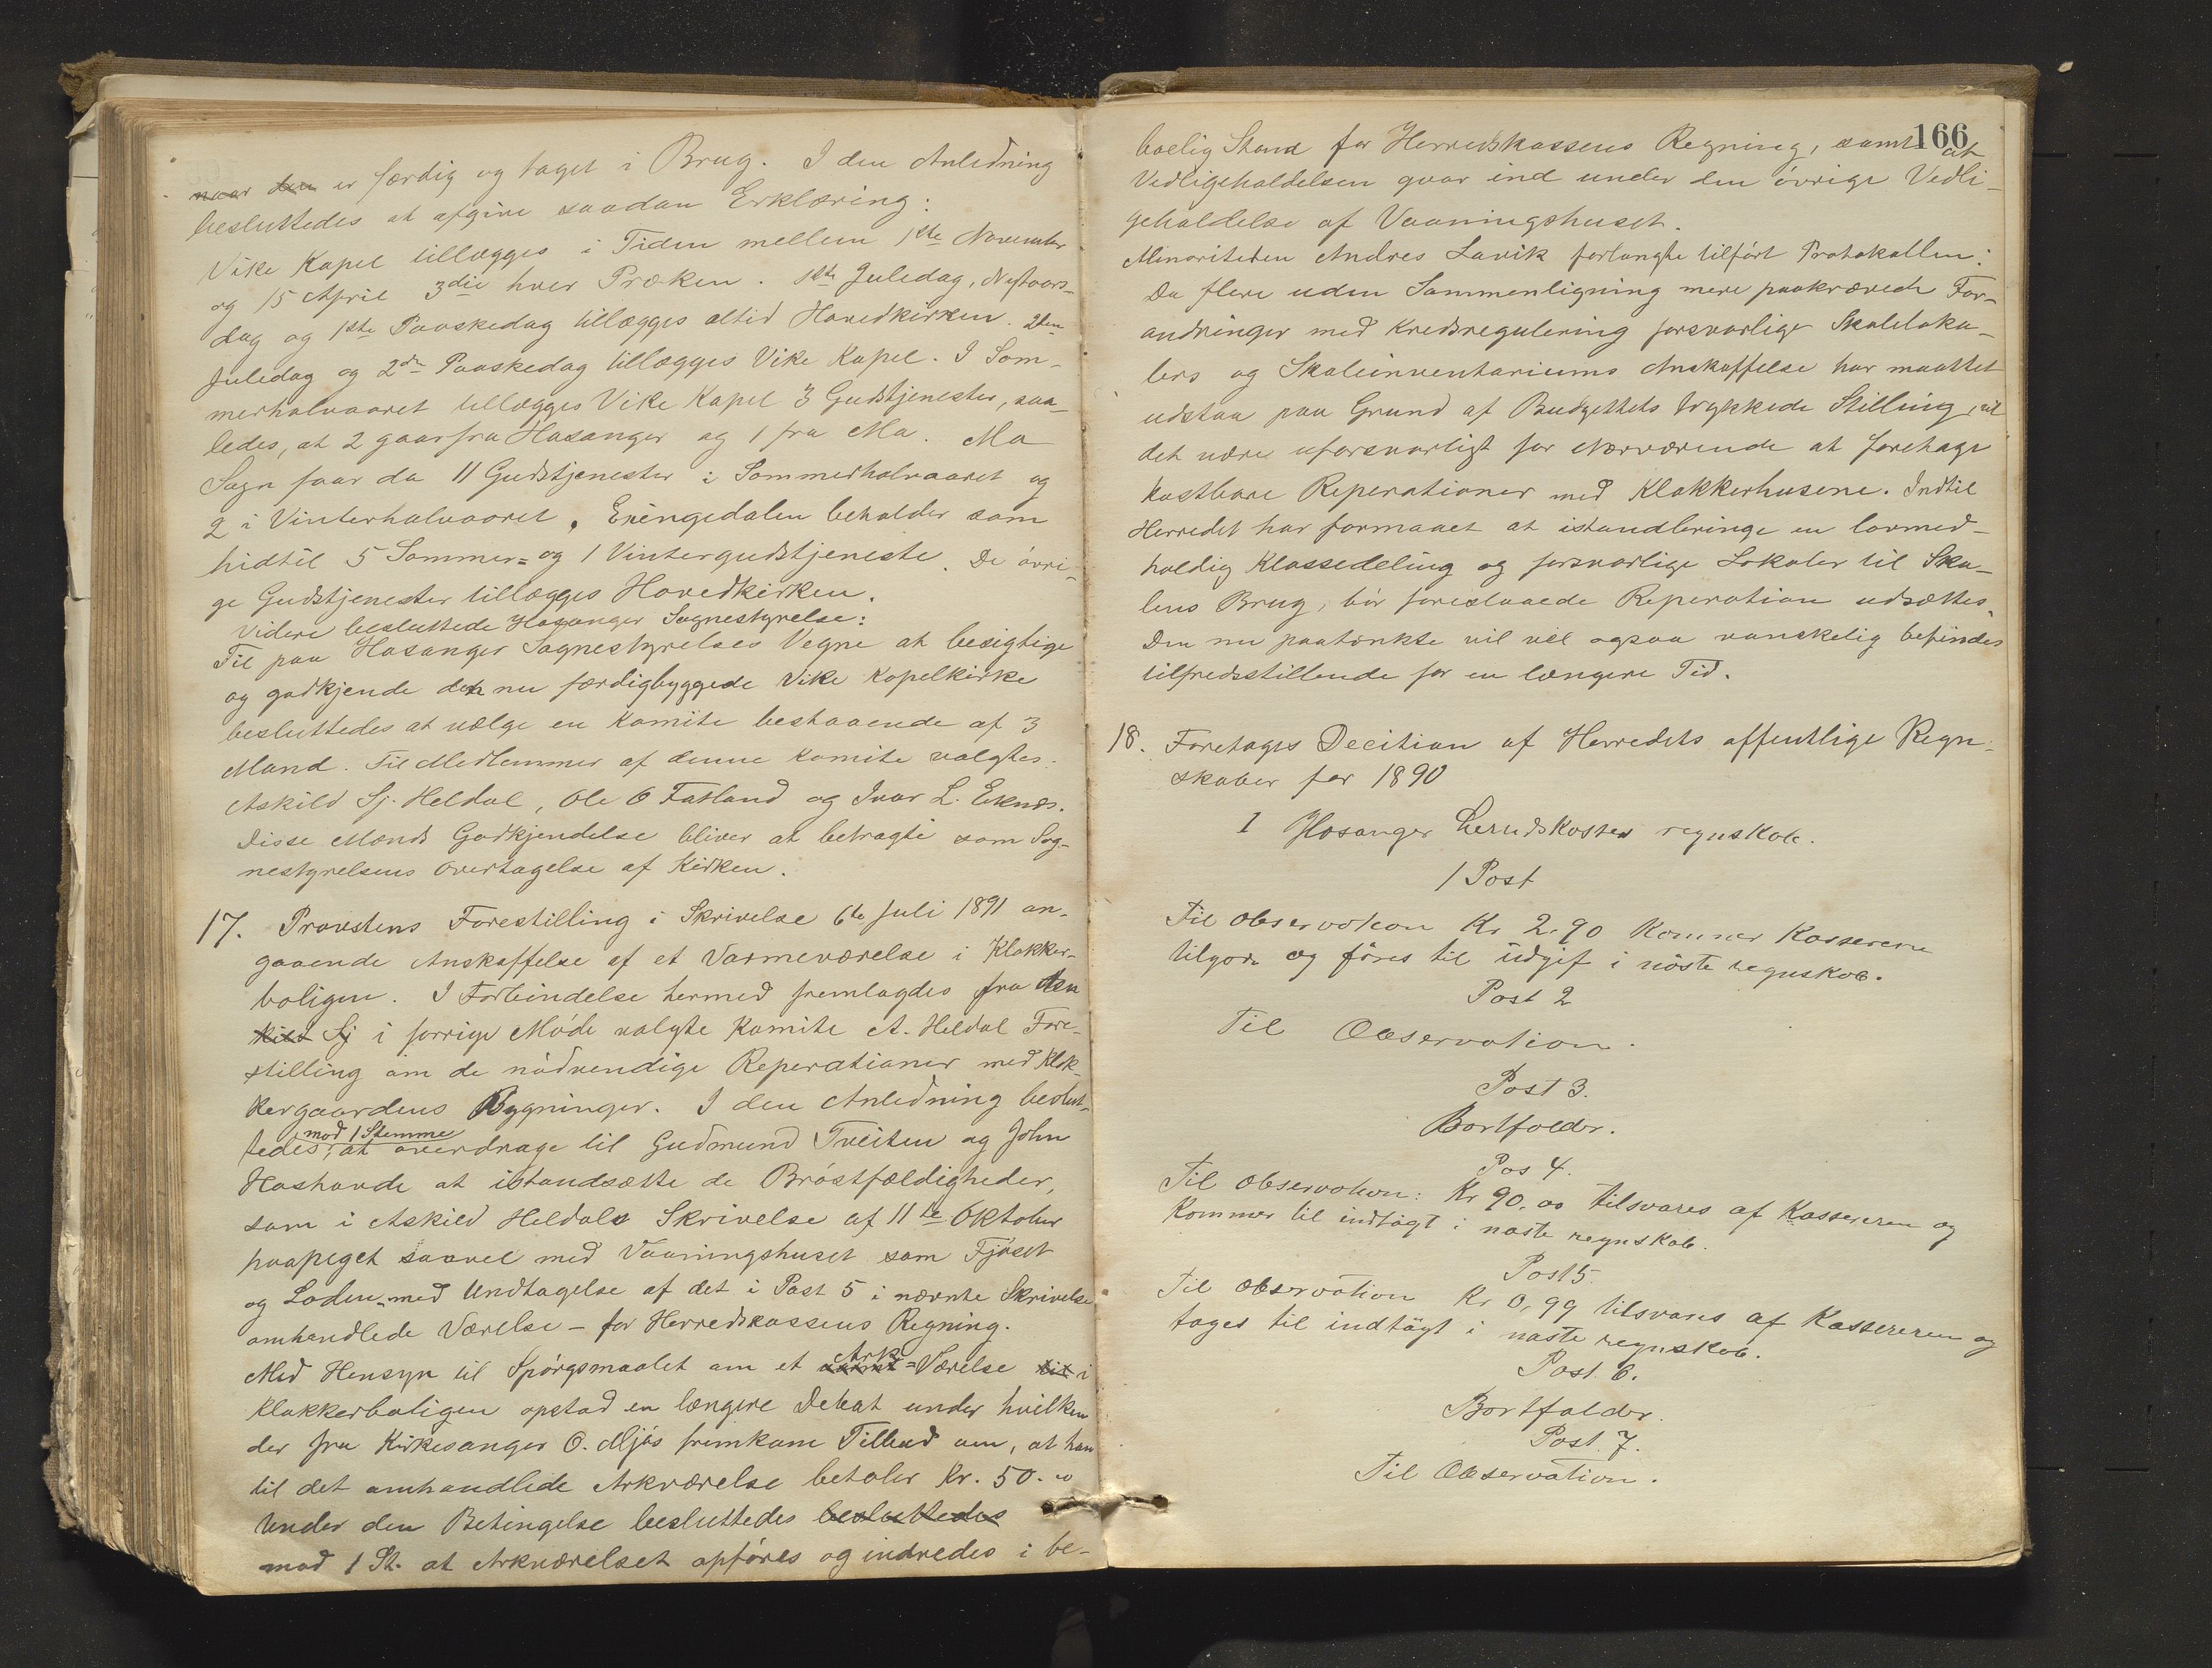 naar den er færdig og taget i Brug. I den Anledning
besluttedes at afgive saadan Erklæring:
Vike Kapel tillægges i Tiden mellem 1ste November
og 15 April 3die hver Præken. 1ste Juledag, Nytaars-
dag og 1ste Paaskedag tillægges altid Hovedkirken. 2den
Juledag og 2den Paaskedag tillægges Vike Kapel. I Som-
merhalvaaret tillægges Vike Kapel 3 Gudstjenester, saa-
ledes, at 2 gaar fra Hosanger og 1 fra Mo. Mo
Sogn faar da 11 Gudstjenester i Sommerhalvaaret og
2 i Vinterhalvaaret. Exingedalen beholder som
hidtil 5 Sommer= og 1 Vintergudstjeneste. De øvri-
ge Gudstjenester tillægges Hovedkirken.
Videre besluttede Hosanger Sognestyrelse:
Til paa Hosanger Sognestyrelses Vegne at besigtige
og godkjende den nu færdigbyggede Vike Kapelkirke
besluttedes at vælge en Komite bestaaende af 3
Mand. Til Medlemmer af denne Komite valgtes:
Askild Sj. Heldal, Ole O Fatland og Ivar L. Eknæs.
Disse Mænds Godkjendelse bliver at betragte som Sog-
nestyrelsens Overtagelse af Kirken.
17. Provstens Forestilling i Skrivelse 6te Juli 1891 an-
gaaende Anskaffelse af et Varmeværelse i Klokker-
boligen. I Forbindelse hermed fremlagdes fra den
kild Sj i forrige Møde valgte Komite A. Heldal Fore-
stilling om de nødvendige Reperationer med Klok-
kergaardens Bygninger. I den Anledning beslut-
mod 1 Stemme
tedes, at overdrage til Gudmund Tveiten og John
Hoshovde at istandsætte de Brøstfældigheder,
som i Askild Heldals Skrivelse af 11te Oktober
paapeget saavel med Vaaningshuset som Fjøset
og Loden - med Undtagelse af det i Post 5 i nævnte Skrivelse
omhandlede Værelse - for Herredskassens Regning.
Ark
Med Hensyn til Spørgsmaalet om et =Værelse til i
Klokkerboligen opstod en længere Debat under hvilken
der fra Kirkesanger O. Mjøs fremkom Tilbud om, at han
til det omhandlede Arkværelse betaler Kr. 50.00
Under den Betingelse besluttedes besluttedes
mod 1 St. at Arkværelset opføres og indredes i be-
166
boelig Stand for Herredskassens Regning, samt at
Vedligeholdelsen gaar ind under den øvrige Vedli-
geholdelse af Vaaningshuset.
Minoriteten Andres Lavik forlangte tilført Protokollen:
Da flere uden Sammenligning mere paakrævede For-
andringer med Kredsregulering forsvarlige Skoleloka-
lers og Skoleinventariums Anskaffelse har maattet
udstaa paa Grund af Budgettets trykkede Stilling, vil
det være uforsvarligt for Nærværende at foretage
kostbare Reperationer med Klokkerhusene. Indtil
Herredet har formaaet at istandbringe en lovmed-
holdig Klassedeling og forsvarlige Lokaler til Sko-
lens Brug, bør foreslaaede Reperation udsættes.
Den nu paatænkte vil vel ogsaa vanskelig befindes
tilfredsstillende for en længere Tid.
18. Foretages Decition af Herredets offentlige Regn-
skaber for 1890
1 Hosanger herredskasses regnskab.
1 Post
Til observation Kr 2.90 Kommer Kassereren
tilgode og føres til üdgif i nöste regnskab.
Post 2
Til Observation.
Post 3.
Bortfalder.
Pos 4.
Til observation: Kr 90.00 tilsvares af Kassereren og
Kommer til indtägt i naste regnskab.
Post 5.
Til observation Kr 0,99 tilsvares af Kassereren og
tages til indtägt i naste regnskab.
Post. 6.
Bortfalder.
Post. 7.
Til Observation.